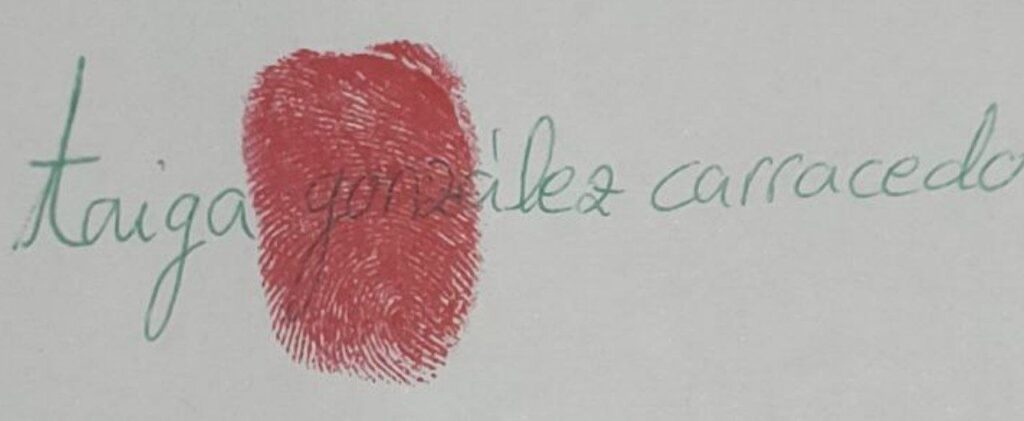 taiga gonzález carracedo